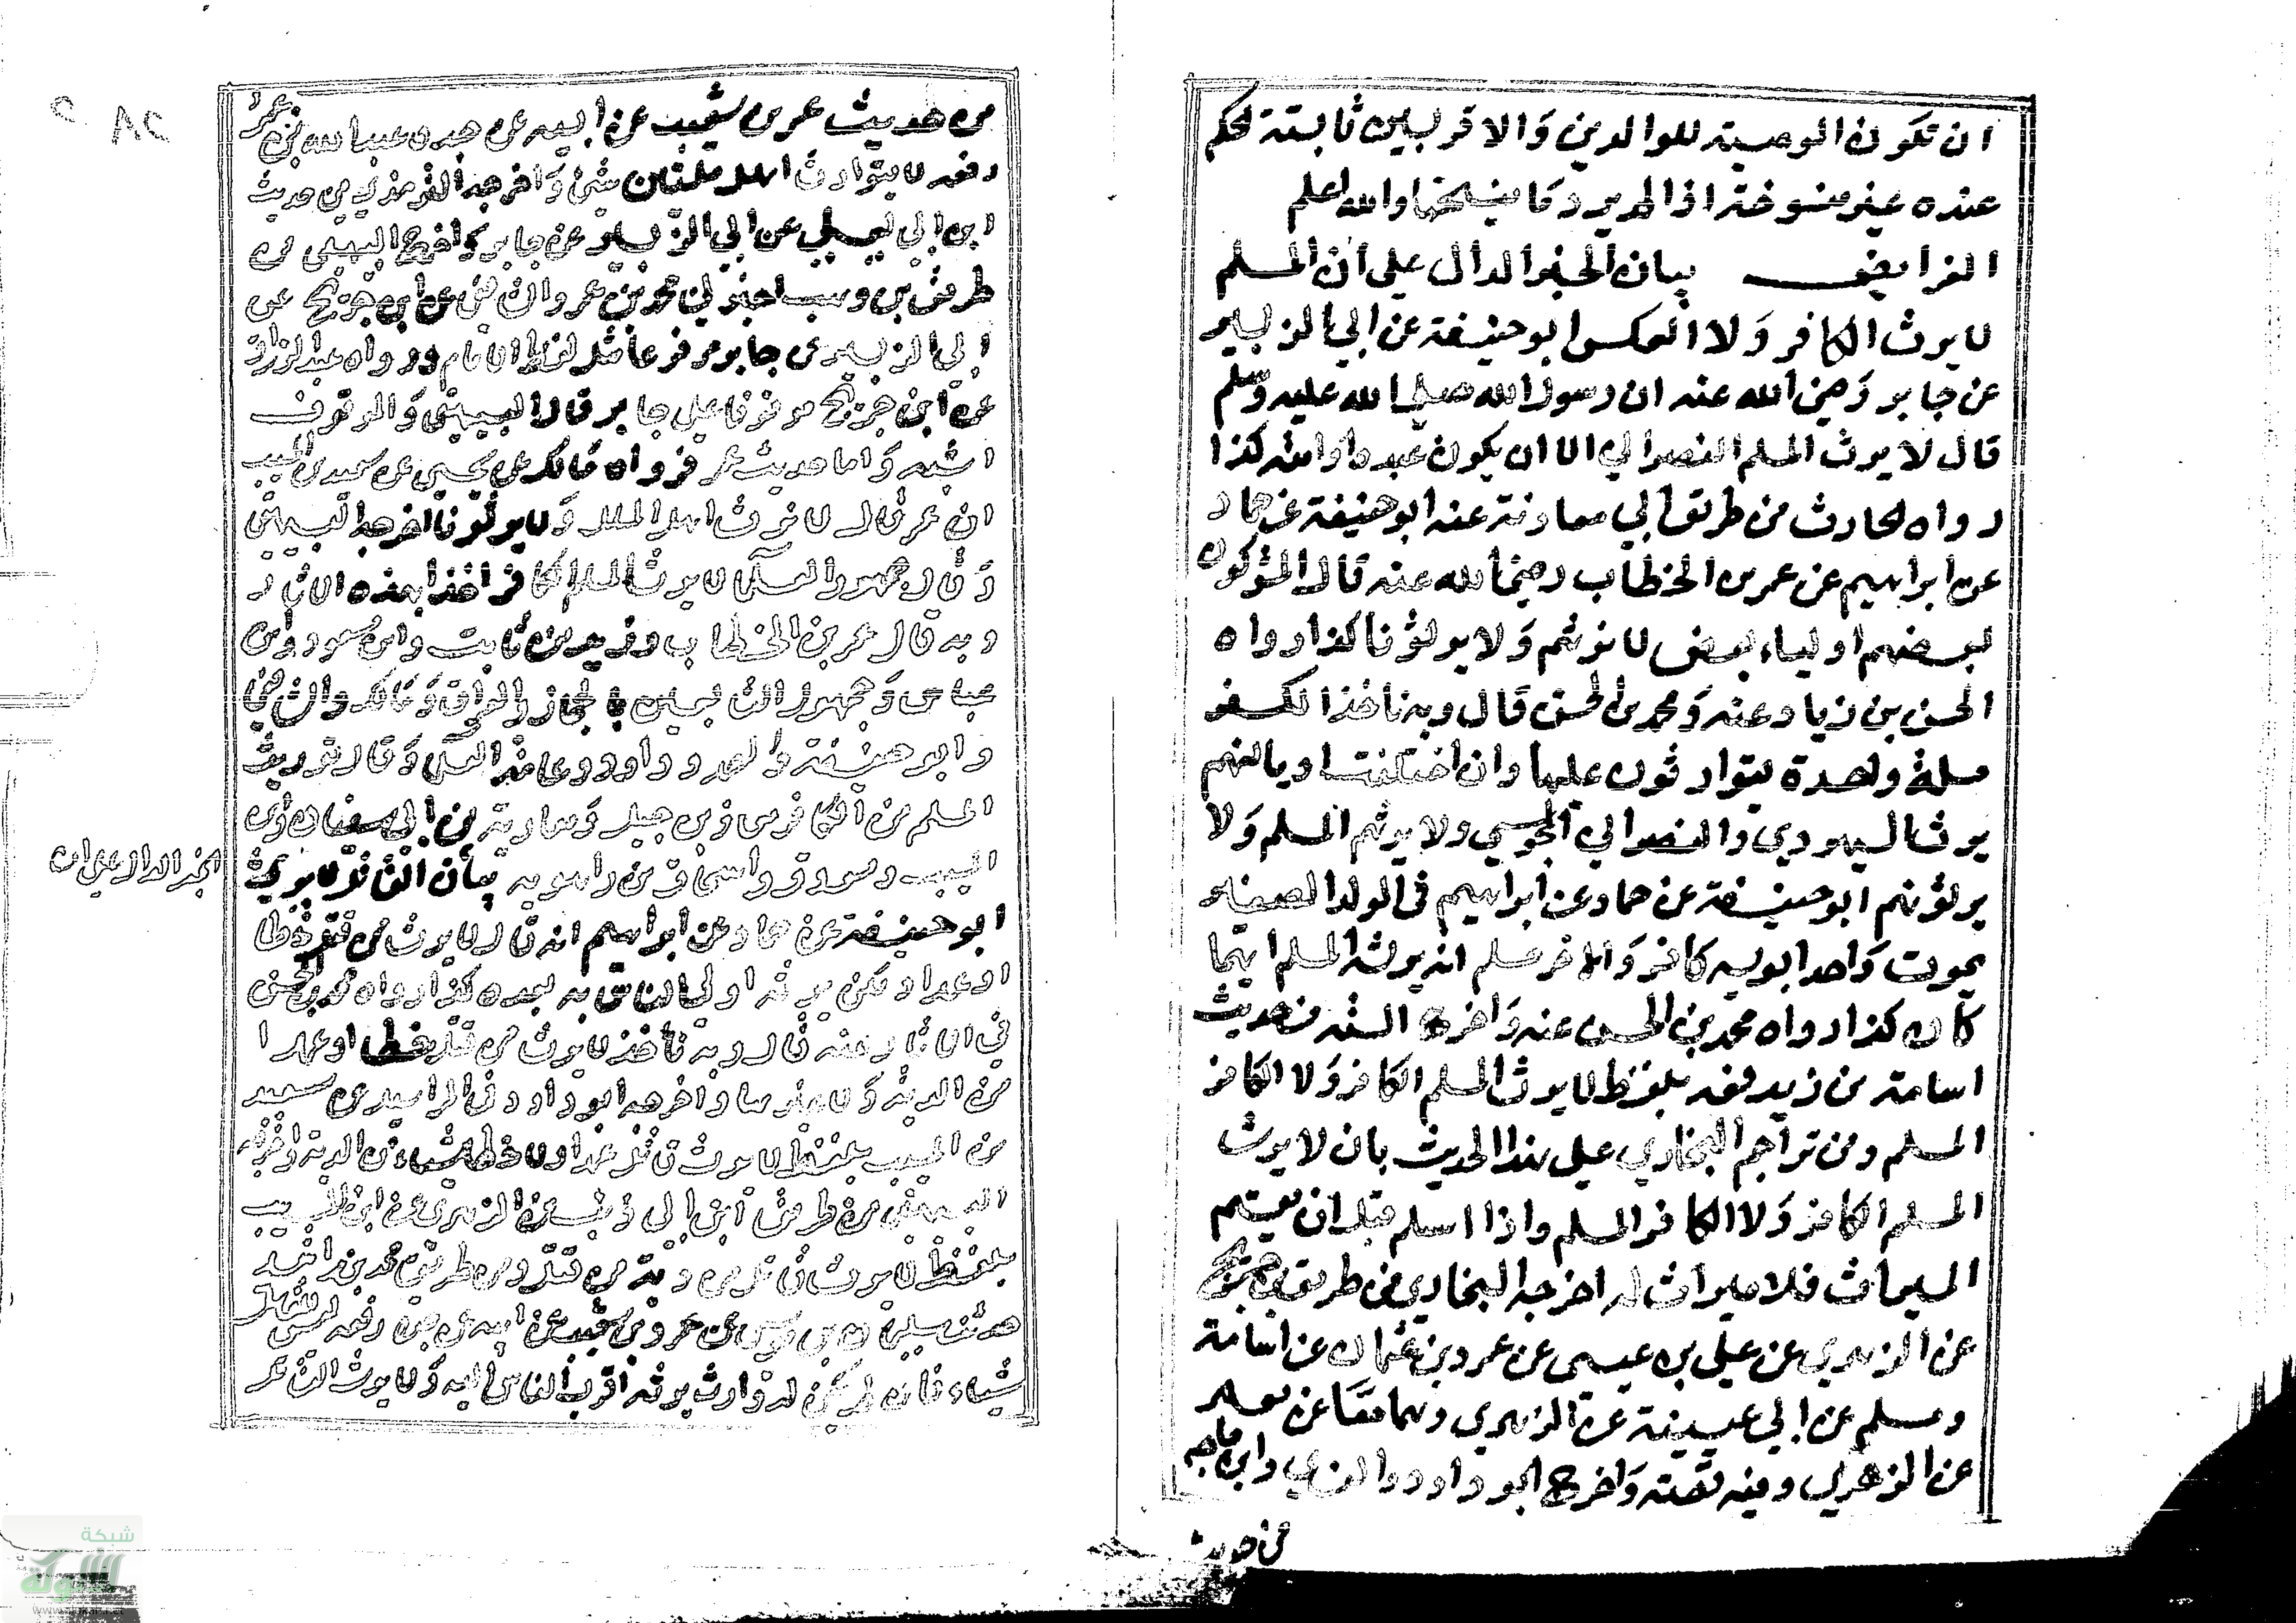 ان تكون الوصية للوالدين والاقربين ثابتة الحكم
عنده غير منسوخة اذا لم يرد ما ينسخها والله اعلم
الفرايض بيان الخبر الدال على ان المسلم
لا يرث الكافر ولا العكس ابو حنيفة عن ابي الزبير
عن جابر رضي الله عنه ان رسول الله صلى الله عليه وسلم
قال لا يرث المسلم النصراني الا ان يكون عبده او امته كذا
رواه الحارث من طريق ابي معاوية عنه ابو حنيفة عن حماد
عن ابراهيم عن عمر بن الخطاب رضي الله عنه قال المشركون
بعضهم اولياء بعض لا نرثهم ولا يرثونا كذا رواه
الحسن بن زياد عنه ومحمد بن الحسن قال وبه ناخذ الكفر
ملة واحدة يتوارثون عليها وان اختلفت اديانهم
يرث اليهودي والنصراني المجوسي ولا يرثهم المسلم ولا
يرثونهم ابو حنيفة عن حماد عن ابراهيم في الولد الصغير
يموت واحد ابويه كافر والاخر مسلم انه يرثه المسلم ايهما
كان كذا رواه محمد بن الحسن عنه واخرج الستة من حديث
اسامة بن زيد رفعه بلفظ لا يرث المسلم الكافر ولا الكافر
المسلم ومن تراجم البخاري على هذا الحديث بان لا يرث
المسلم الكافر ولا الكافر المسلم واذا اسلم قبل ان يقسم
الميراث فلا ميراث له اخرجه البخاري من طريق ابن جريج
عن الزهري عن علي بن عيسى عن عمرو بن عثمان عن اسامة
ومسلم عن ابي عيينة عن الزهري وهما معا عن معمر
عن الزهري وفيه قصته واخرج ابو داود والنسائي وابن ماجه
من حديث
من حديث عمرو بن شعيب عن ابيه عن جده عبد الله بن عمرو
رفعه لا يتوارث اهل ملتين شيئ واخرجه الترمذي من حديث
ابن ابي ليلى عن ابي الزبير عن جابر واخرج البيهقي من
طريق بن وهب اخبرني محمد بن عمرو اليافعي عن ابن جريج عن
ابي الزبير عن جابر مرفوعا مثل لفظ الامام ورواه عبد الرزاق
عن ابن جريج موقوفا على جابر قال البيهقي والموقوف
اشبه واما حديث عمر فرواه مالك عن يحيى عن سعيد بن المسيب
ان عمر قال لا نرث اهل الملل ولا يرثونا اخرجه البيهقي
وقال جمهور العلماء لا يرث المسلم الكافر اخذا بهذه الاثار
وبه قال عمر بن الخطاب وزيد بن ثابت وابن مسعود وابن
عباس وجمهور التابعين بالحجاز والعراق ومالك والشافعي
وابو حنيفة واحمد وداود وعامة العلماء وقال توريث
المسلم من الكافر معاذ بن جبل ومعاوية بن ابي سفيان وابن
المسيب ومسروق واسحاق بن راهويه بيان القاتل لا يرث
الخبر الدال على ان
ابو حنيفة عن حماد عن ابراهيم انه قال لا يرث من قتل خطا
او عمدا ولكن يرثه اولى الناس به بعده كذا رواه محمد بن الحسن
في الاثار عنه قال وبه ناخذ لا يرث من قتل خطا او عمدا
من الدية ولا غيرها واخرجه ابو داود في المراسيل عن سعيد
بن المسيب بلفظ لا يرث قاتل عمدا ولا خطا شياء من الدية واخرجه
البيهقي من طريق ابن ابي ذئب عن الزهري عن ابن المسيب
بلفظ لا يرث قاتل من دية من قتل ومن طريق محمد بن راشد
حدثنا سليمان بن موسى عن عمرو بن شعيب عن ابيه عن جده رفعه ليس للقاتل
شياء فان لم يكن له وارث يرثه اقرب الناس اليه ولا يرث القاتل